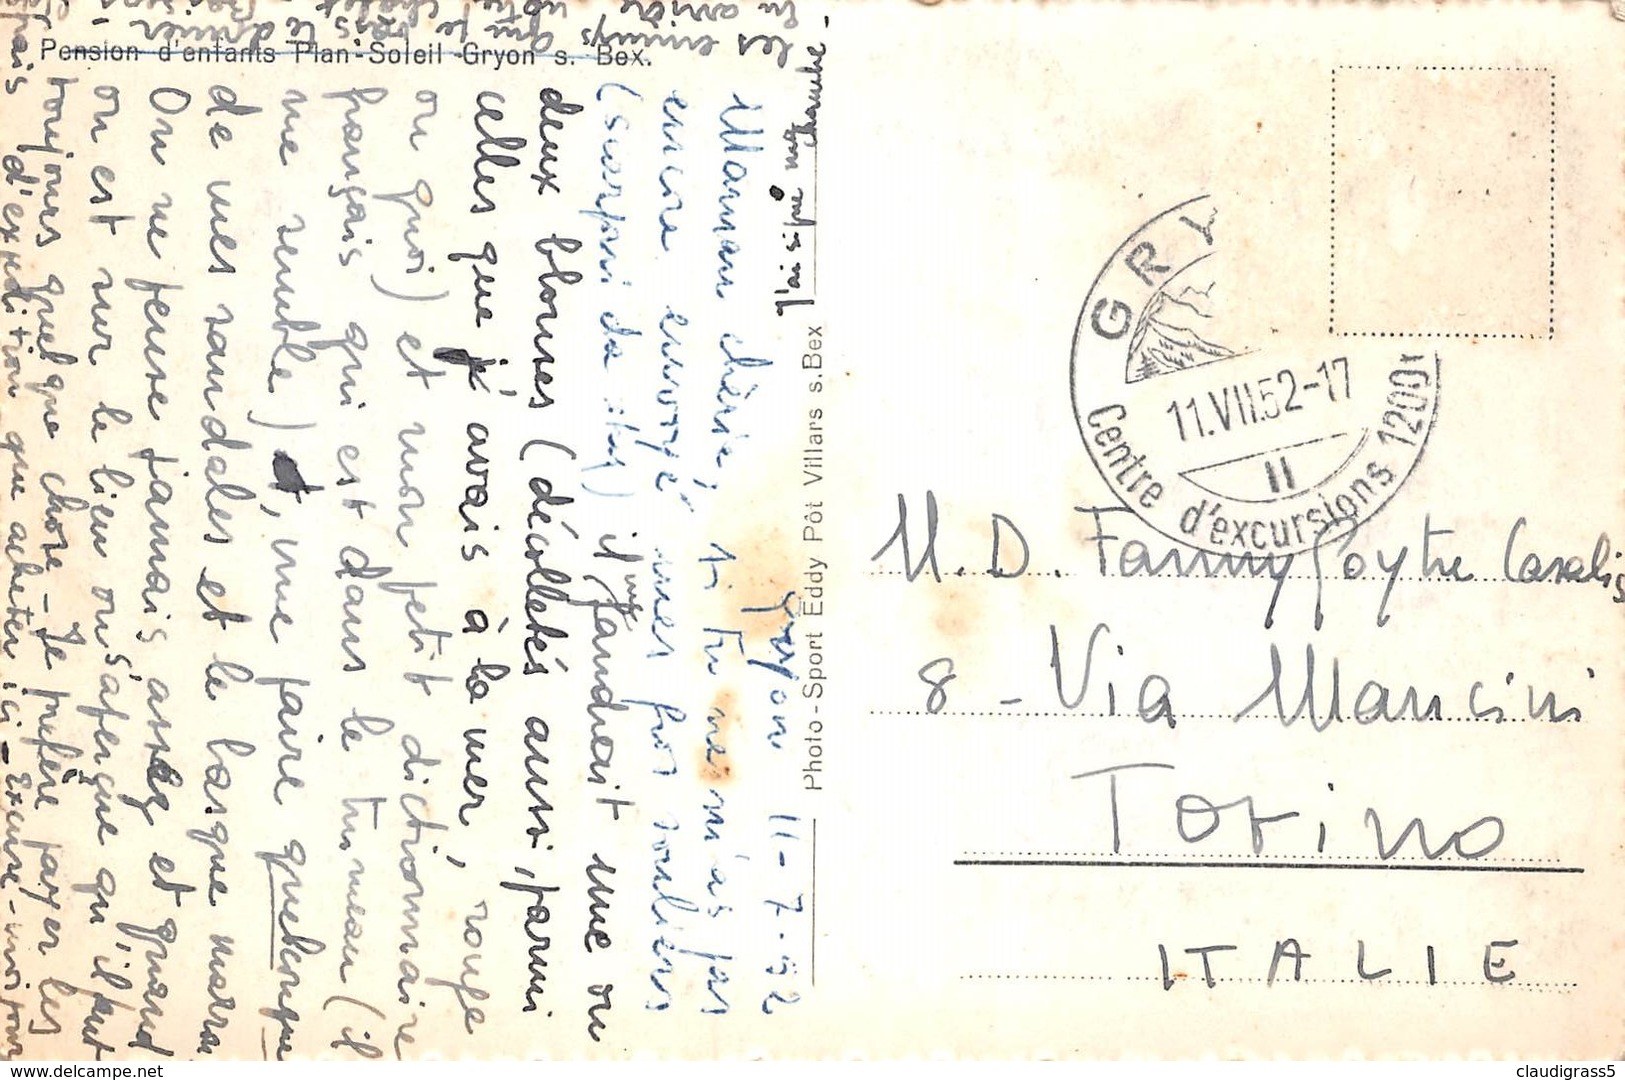 Pension d'enfants Plan-Soleil-Gryon s. Bex.
Photo-Sport Eddy Pôt Villars s. Bex
Gryon 11-7-52
Maman chérie, si tu ne m'as pas
encore envoyé mes gros souliers
(scarponi da sky) il me faudrait une ou
deux blouses (décolletés aussi, parmi
celles que j'avais à la mer, rouge
ou quoi) et mon petit dictionnaire
français qui est dans le trumeau (il
me semble) et, me faire quelconque
de mes sandales et le basque marron
On ne pense jamais assez et quand
on est sur le lieu on s'aperçoit qu'il faut
toujours quelque chose - Je préfère payer les
frais d'expédition que acheter ici - excuse-moi pour
les ennuis que je
J'ai signé ma
chambre -
GRY
11.VII.52-17
II
Centre d'excursions 1200
M. D. Fanny Poytre Casalis
8 - Via Mancini
Torino
ITALIE
delcampe.net
claudigrass5